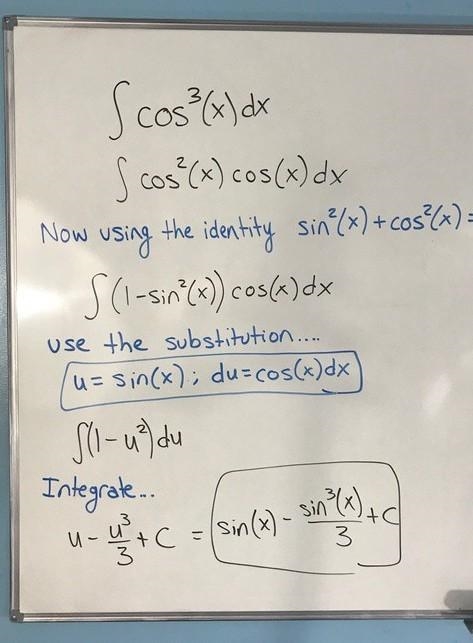 ∫ cos³(x) dx
∫ cos²(x) cos(x) dx
Now using the identity sin²(x) + cos²(x) =
∫ (1 - sin²(x)) cos(x) dx
use the substitution....
u = sin(x); du = cos(x) dx
∫(1 - u²) du
Integrate...
u - u³/3 + C = sin(x) - sin³(x)/3 + C